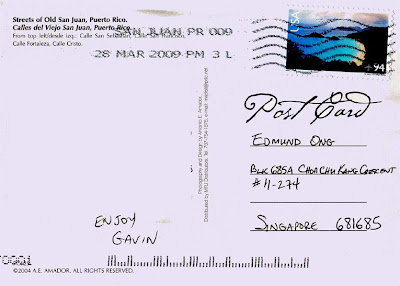 Streets of Old San Juan, Puerto Rico.
Calles del Viejo San Juan, Puerto Rico
From top left/desde izq.: Calle San Sebastián, Calle San Francisco,
Calle Fortaleza, Calle Cristo.
SAN JUAN PR 009
28 MAR 2009 PM 3 L
USA
94
Post Card
EDMUND ONG
BLK 685A CHOA CHU KANG CRESCENT
#11-274
SINGAPORE 681685
ENJOY
GAVIN
Photography and Design by Antonio E. Amador.
Distributed by MPU Distributors. Tel. 787-
©2004 A.E. AMADOR. ALL RIGHTS RESERVED.